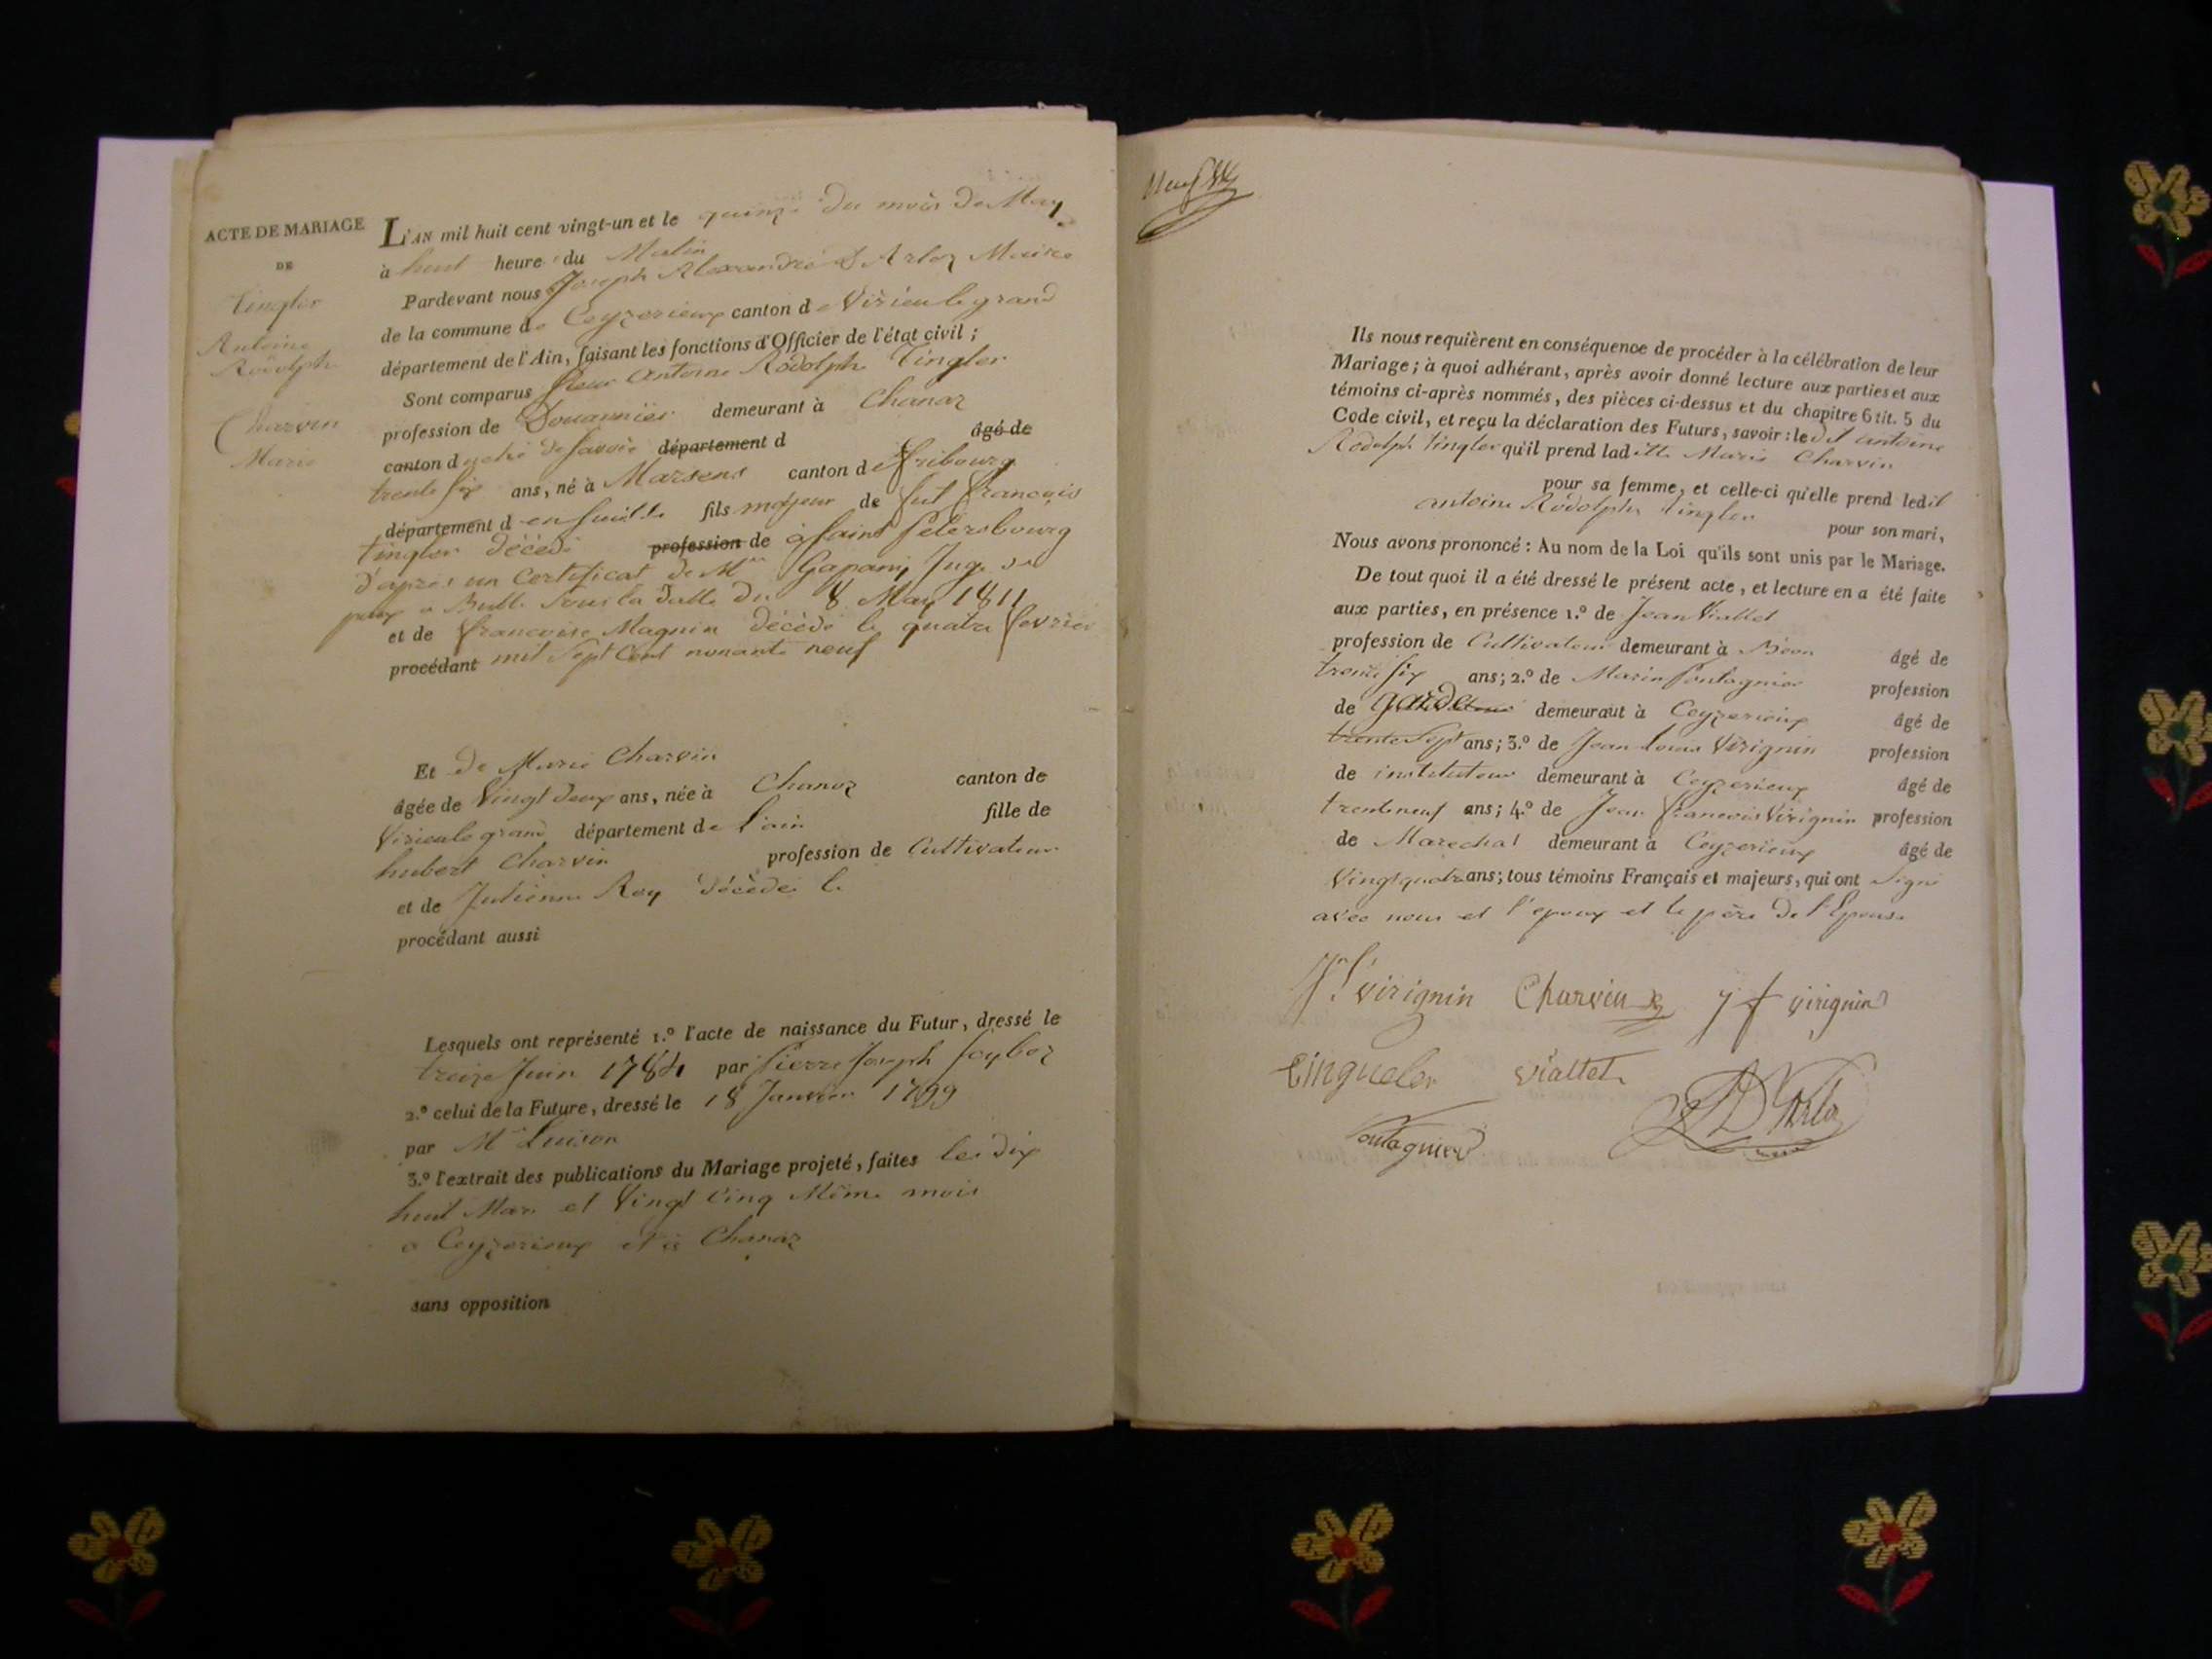 ACTE DE MARIAGE
DE
Tingler
Antoine
Rodolph
Charvin
Marie
L'AN mil huit cent vingt-un et le quinze du mois de May
à huit heure du Matin
Pardevant nous Joseph Alexandre D Arloz Maire
de la commune de Ceyzerieux canton de Virieu le grand
département de l'Ain, faisant les fonctions d'Officier de l'état civil ;
Sont comparus Sieur antoine Rodolphe Tingler
profession de Douannier demeurant à Chanaz
canton duché de Savoie département d âgé de
trente six ans, né à Marsens canton de fribourg
département d en suisse fils majeur de fut francois
tingler décédé profession de à saint petersbourg
d'après un Certificat de Mr Gapany Juge de
paix a Bulle sous la datte du 8 May 1811
et de francoise Magnin décédé le quatre fevrier
procédant mil sept Cent nonante neuf
Et de Marie Charvin
âgée de Vingt deux ans, née à Chanaz canton de
Virieu le grand département de l'ain fille de
hubert Charvin profession de Cultivateur
et de Julienne Roy décédée le
procédant aussi
Lesquels ont représenté 1.º l'acte de naissance du Futur, dressé le
treize Juin 1784 par pierre Joseph
2.º celui de la Future, dressé le 18 Janvier 1799
par Mr
3.º l'extrait des publications du Mariage projeté, faites les dix
huit Mars et Vingt Cinq Même mois
a Ceyzerieux et à Chanaz
sans opposition
Ils nous requièrent en conséquence de procéder à la célébration de leur
Mariage ; à quoi adhérant, après avoir donné lecture aux parties et aux
témoins ci-après nommés, des pièces ci-dessus et du chapitre 6 tit. 5 du
Code civil, et reçu la déclaration des Futurs, savoir : le dit antoine
Rodolph tingler qu'il prend laditte Marie Charvin
pour sa femme, et celle-ci qu'elle prend ledit
antoine Rodolphe tingler pour son mari,
Nous avons prononcé : Au nom de la Loi qu'ils sont unis par le Mariage.
De tout quoi il a été dressé le présent acte, et lecture en a été faite
aux parties, en présence 1.º de Jean Viallet
profession de Cultivateur demeurant à Béon âgé de
trente six ans ; 2.º de Marin pontagnier profession
de garde demeurant à Ceyzerieux âgé de
trente sept ans ; 3.º de Jean Louis Virignin profession
de instituteur demeurant à Ceyzerieux âgé de
trente neuf ans ; 4.º de Jean francois Virignin profession
de Marechal demeurant à Ceyzerieux âgé de
Vingt quatre ans ; tous témoins Français et majeurs, qui ont signé
avec nous et l'epoux et le père de l'Epouse
Jn Ls virignin Charvin j f virignin
Tingueler viallet
pontagnier D'Arloz